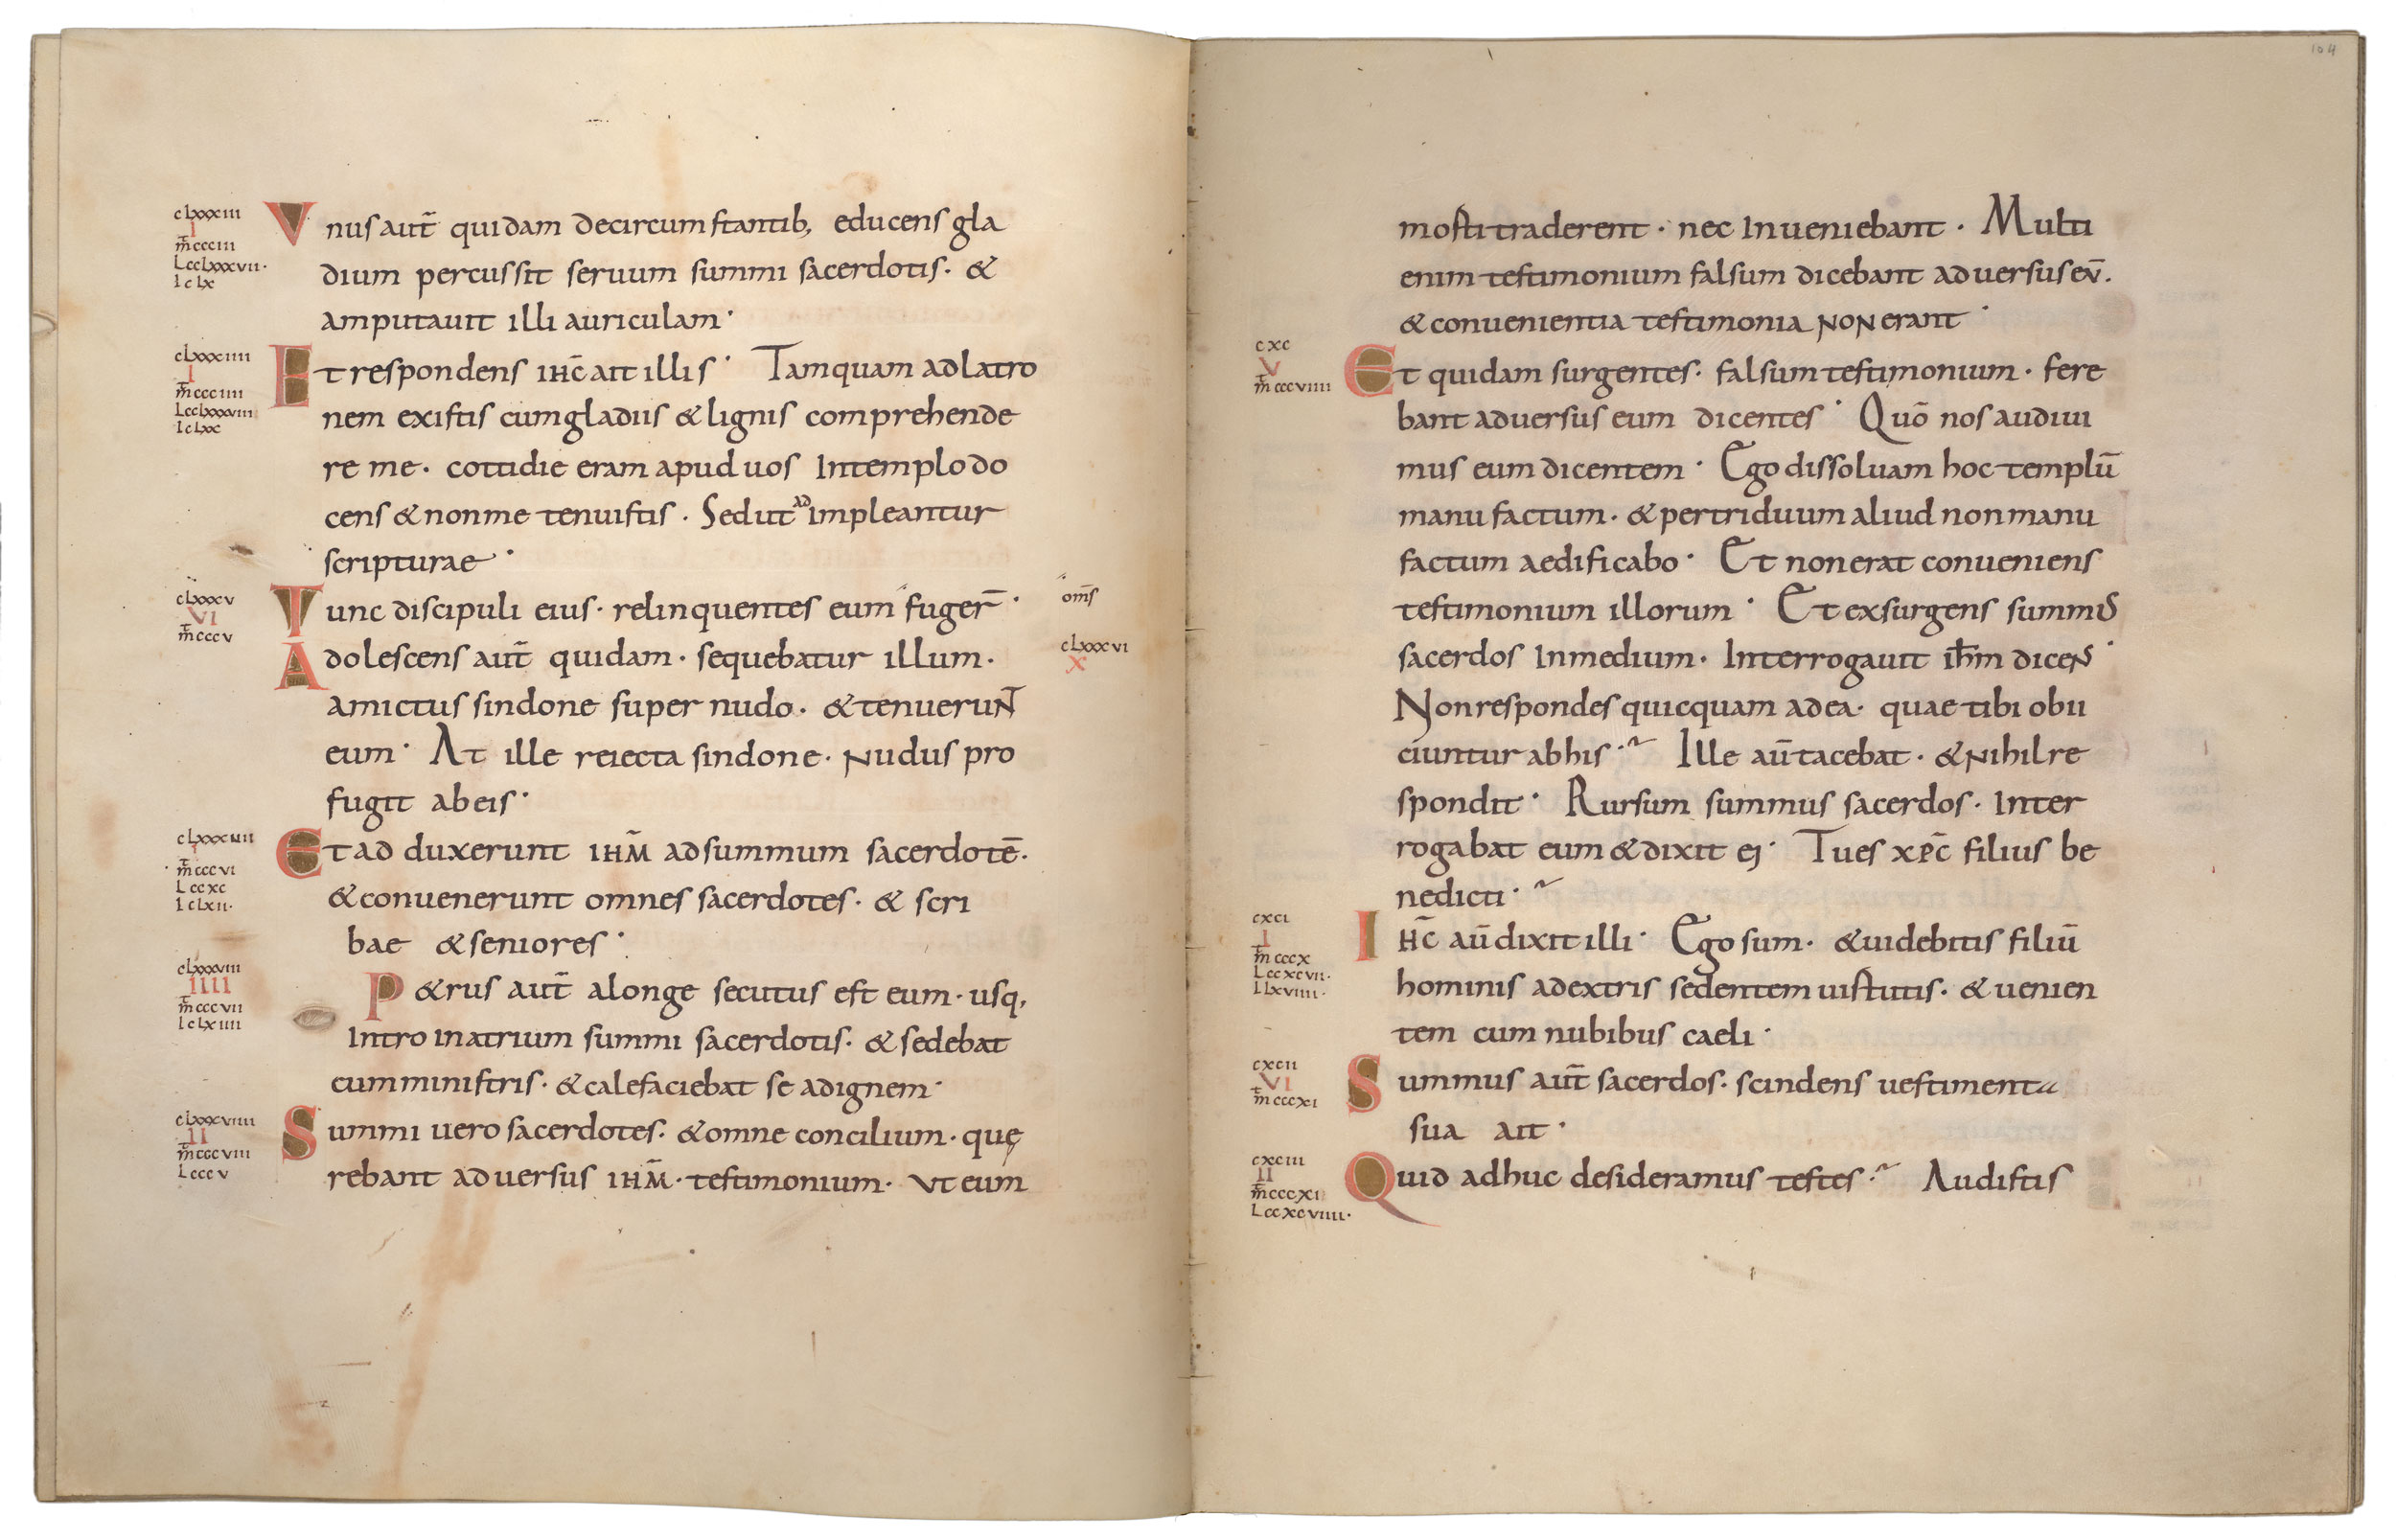 clxxxiii
I
mt ccciii
L cclxxxvii·
I clx
Vnus aut̄ quidam decircumstantib; educens gla
dium percussit seruum summi sacerdotis· &
amputauit illi auriculam·
clxxxiiii
I
mt ccciiii
L cclxxxviii
I clxx
Et respondens ihc̄ ait illis· Tamquam adlatro
nem existis cumgladiis & lignis comprehende
re me· cottidie eram apud uos Intemplo do
cens & nonme tenuistis· Sedut ad impleantur
scripturae·
clxxxv
VI
mt cccv
Tunc discipuli eius· relinquentes eum fuger̄·
om̄s
Adolescens aut̄ quidam· sequebatur illum·
clxxxvi
X
amictus sindone super nudo· & tenuerunt
eum· At ille reiecta sindone· nudus pro
fugit abeis·
clxxxvii
I
mt cccvi
L ccxc
I clxii·
Et ad duxerunt ihm̄ adsummum sacerdotē·
& conuenerunt omnes sacerdotes· & scri
bae & seniores·
clxxxviii
IIII
mt cccvii
I clxiiii
P&rus aut̄ alonge secutus est eum· usq;
Intro inatrium summi sacerdotis· & sedebat
cumministris· & calefaciebat se adignem·
clxxxviiii
II
mt cccviii
L cccv
Summi uero sacerdotes· & omne concilium· quę
rebant aduersus ihm̄· testimonium· ut eum
104
morti traderent· nec Inueniebant· Multi
enim testimonium falsum dicebant aduersus eū·
& conuenientia testimonia non erant·
cxc
V
mt cccviiii
Et quidam surgentes· falsum testimonium· fere
bant aduersus eum dicentes· Quō nos audiui
mus eum dicentem· Ego dissoluam hoc templū
manu factum· & pertriduum aliud nonmanu
factum aedificabo· Et nonerat conueniens
testimonium illorum· Et exsurgens summus
sacerdos Inmedium· Interrogauit ihm̄ dicens·
Nonrespondes quicquam adea· quae tibi obii
ciuntur abhis·~ Ille aūt tacebat· & nihil re
spondit· Rursum summus sacerdos· Inter
rogabat eum & dixit ei· Tues xpc̄ filius be
nedicti·~
cxci
I
mt cccx
L ccxcvii·
I lxviiii·
Ihc̄ aūt dixit illi· Ego sum· & uidebitis filiū
hominis adextris sedentem uirtutis· & uenien
tem cum nubibus caeli·
cxcii
VI
mt cccxi
Summus aut̄ sacerdos· scindens uestimenta
sua ait·
cxciii
II
mt cccxi
L ccxcviiii·
Quid adhuc desideramus testes·~ Audistis